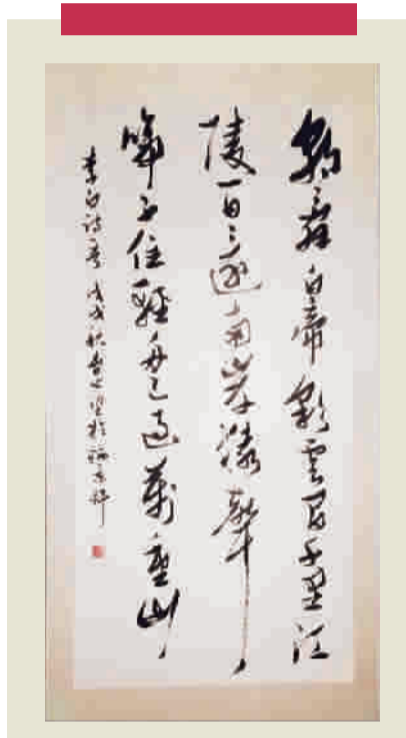 朝辞白帝彩雲间千里江
陵一日還两岸猿聲
啼不住輕舟已过萬重山
李白诗 戊戌秋